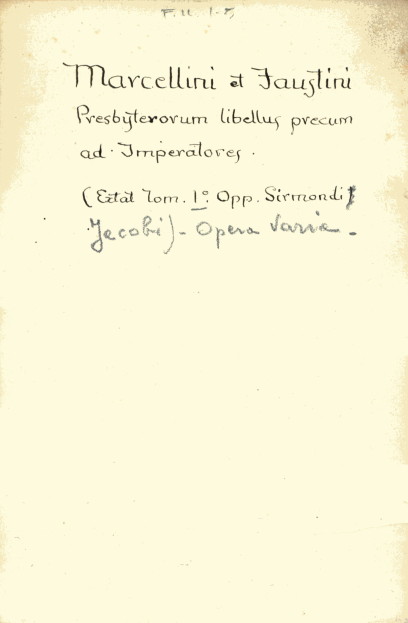 F.II. 1-5
Marcellini et Faustini
Presbÿterorum libellus precum
ad Imperatores.
(Extat Tom. 1º. Opp. Sirmondi)
Jacobi) - Opera Varia -